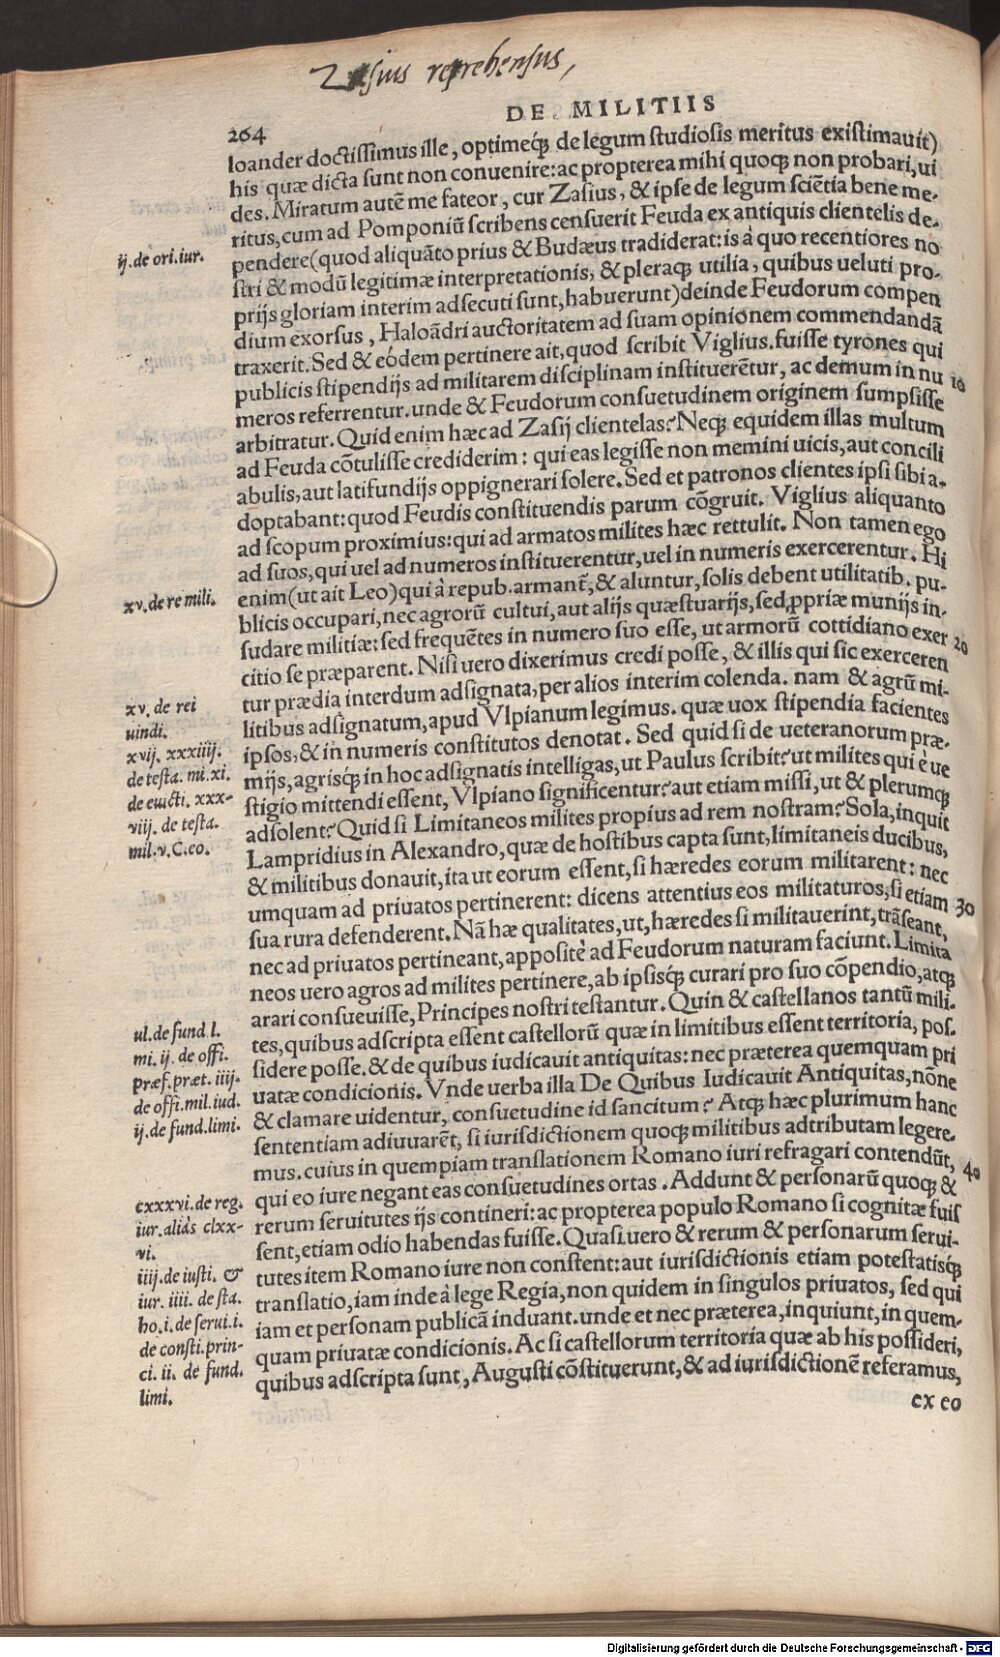 Zasius reprehensus,
DE MILITIIS
264
loander doctissimus ille, optimeq́ꝫ de legum studiosis meritus existimauit)
his quæ dicta sunt non conuenire: ac propterea mihi quoqꝫ non probari, ui
des. Miratum autē me fateor, cur Zasius, & ipse de legum sciētia bene me-
ritus, cum ad Pomponiū scribens censuerit Feuda ex antiquis clientelis de-
ij. de ori. iur.
pendere (quod aliquāto prius & Budæus tradiderat: is à quo recentiores no
stri & modū legitimæ interpretationis, & pleraqꝫ utilia, quibus ueluti pro-
prijs gloriam interim adsecuti sunt, habuerunt) deinde Feudorum compen
dium exorsus, Haloādri auctoritatem ad suam opinionem commendandā
traxerit. Sed & eódem pertinere ait, quod scribit Viglius. fuisse tyrones qui
publicis stipendijs ad militarem disciplinam instituerētur, ac demum in nu 10
meros referrentur. unde & Feudorum consuetudinem originem sumpsisse
arbitratur. Quid enim hæc ad Zasij clientelas? Neqꝫ equidem illas multum
ad Feuda cōtulisse crediderim: qui eas legisse non memini uicis, aut concili
abulis, aut latifundijs oppignerari solere. Sed et patronos clientes ipsi sibi a-
doptabant: quod Feudis constituendis parum cōgruit. Viglius aliquanto
ad scopum proximius: qui ad armatos milites hæc rettulit. Non tamen ego
ad suos, qui uel ad numeros instituerentur, uel in numeris exercerentur. Hi
xv. de re mili.
enim (ut ait Leo) qui à repub. armant̄, & aluntur, solis debent utilitatib. pu-
blicis occupari, nec agrorū cultui, aut alijs quæstuarijs, sed ꝓpriæ munijs in-
sudare militiæ: sed frequētes in numero suo esse, ut armorū cottidiano exer 20
citio se præparent. Nisi uero dixerimus credi posse, & illis qui sic exerceren
xv. de rei
uindi.
xvij. xxxiiij.
de testa. mi. xi.
de euicti. xxx-
viij. de testa.
mil. v. C. eo.
tur prædia interdum adsignata, per alios interim colenda. nam & agrū mi-
litibus adsignatum, apud Vlpianum legimus. quæ uox stipendia facientes
ipsos, & in numeris constitutos denotat. Sed quid si de ueteranorum præ-
mijs, agrisq́ꝫ in hoc adsignatis intelligas, ut Paulus scribit? ut milites qui è ue
stigio mittendi essent, Vlpiano significentur? aut etiam missi, ut & plerumqꝫ
adsolent? Quid si Limitaneos milites propius ad rem nostram? Sola, inquit
Lampridius in Alexandro, quæ de hostibus capta sunt, limitaneis ducibus,
& militibus donauit, ita ut eorum essent, si hæredes eorum militarent: nec
umquam ad priuatos pertinerent: dicens attentius eos militaturos, si etiam 30
sua rura defenderent. Nā hæ qualitates, ut, hæredes si militauerint, trāseant,
nec ad priuatos pertineant, appositè ad Feudorum naturam faciunt. Limita
neos uero agros ad milites pertinere, ab ipsisq́ꝫ curari pro suo cōpendio, atqꝫ
arari consueuisse, Principes nostri testantur. Quin & castellanos tantū mili-
ul. de fund l.
mi. ij. de offi.
præf. præt. iiij.
de offi. mil. iud.
ij. de fund. limi.
tes, quibus adscripta essent castellorū quæ in limitibus essent territoria, pos-
sidere posse. & de quibus iudicauit antiquitas: nec præterea quemquam pri
uatæ condicionis. Vnde uerba illa De Quibus Iudicauit Antiquitas, nōne
& clamare uidentur, consuetudine id sancitum? Atqꝫ hæc plurimum hanc
sententiam adiuuarēt, si iurisdictionem quoqꝫ militibus adtributam legere-
mus. cuius in quempiam translationem Romano iuri refragari contendūt, 40
cxxxvi. de reg.
iur. aliàs clxx-
vi.
iiij. de iusti. &
iur. iiii. de sta.
ho. i. de serui. i.
de consti. prin-
ci. ii. de fund.
limi.
qui eo iure negant eas consuetudines ortas. Addunt & personarū quoqꝫ &
rerum seruitutes ijs contineri: ac propterea populo Romano si cognitæ fuis
sent, etiam odio habendas fuisse. Quasi uero & rerum & personarum serui-
tutes item Romano iure non constent: aut iurisdictionis etiam potestatisq́ꝫ
translatio, iam inde à lege Regia, non quidem in singulos priuatos, sed qui
iam et personam publicā induant. unde et nec præterea, inquiunt, in quem-
quam priuatæ condicionis. Ac si castellorum territoria quæ ab his possideri,
quibus adscripta sunt, Augusti cōstituerunt, & ad iurisdictionē referamus,
ex eo
Digitalisierung gefördert durch die Deutsche Forschungsgemeinschaft - DFG